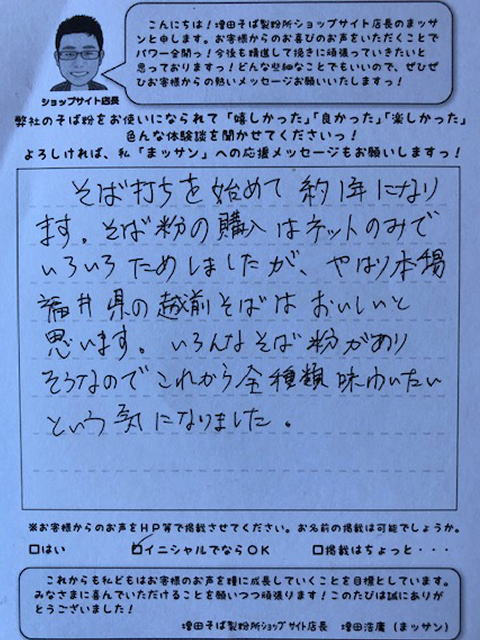 こんにちは！増田そば製粉所ショップサイト店長のまッサ
ンと申します。お客様からのお喜びのお声をいただくことで
パワー全開っ！今後も精進して挽きに頑張っていきたいと
思っておりますっ！どんな些細なことでもいいので、ぜひぜ
ひお客様からの熱いメッセージお願いいたしますっ！
ショップサイト店長
弊社のそば粉をお使いになられて「嬉しかった」「良かった」「楽しかった」
色んな体験談を聞かせてくださいっ！
よろしければ、私「まッサン」への応援メッセージもお願いしますっ！
そば打ちを始めて約1年になり
ます。そば粉の購入はネットのみで
いろいろためしましたが、やはり本場
福井県の越前そばはおいしいと
思います。いろんなそば粉があり
そうなのでこれから全種類味わいたい
という気になりました。
※お客様からのお声をHP等で掲載させてください。お名前の掲載は可能でしょうか。
□はい ☑イニシャルでならOK □掲載はちょっと・・・
これからも私どもはお客様のお声を糧に成長していくことを目標としています。
みなさまに喜んでいただけることを願いつつ頑張ります！このたびは誠にありが
とうございました！
増田そば製粉所ショップサイト店長 増田浩庸（まッサン）